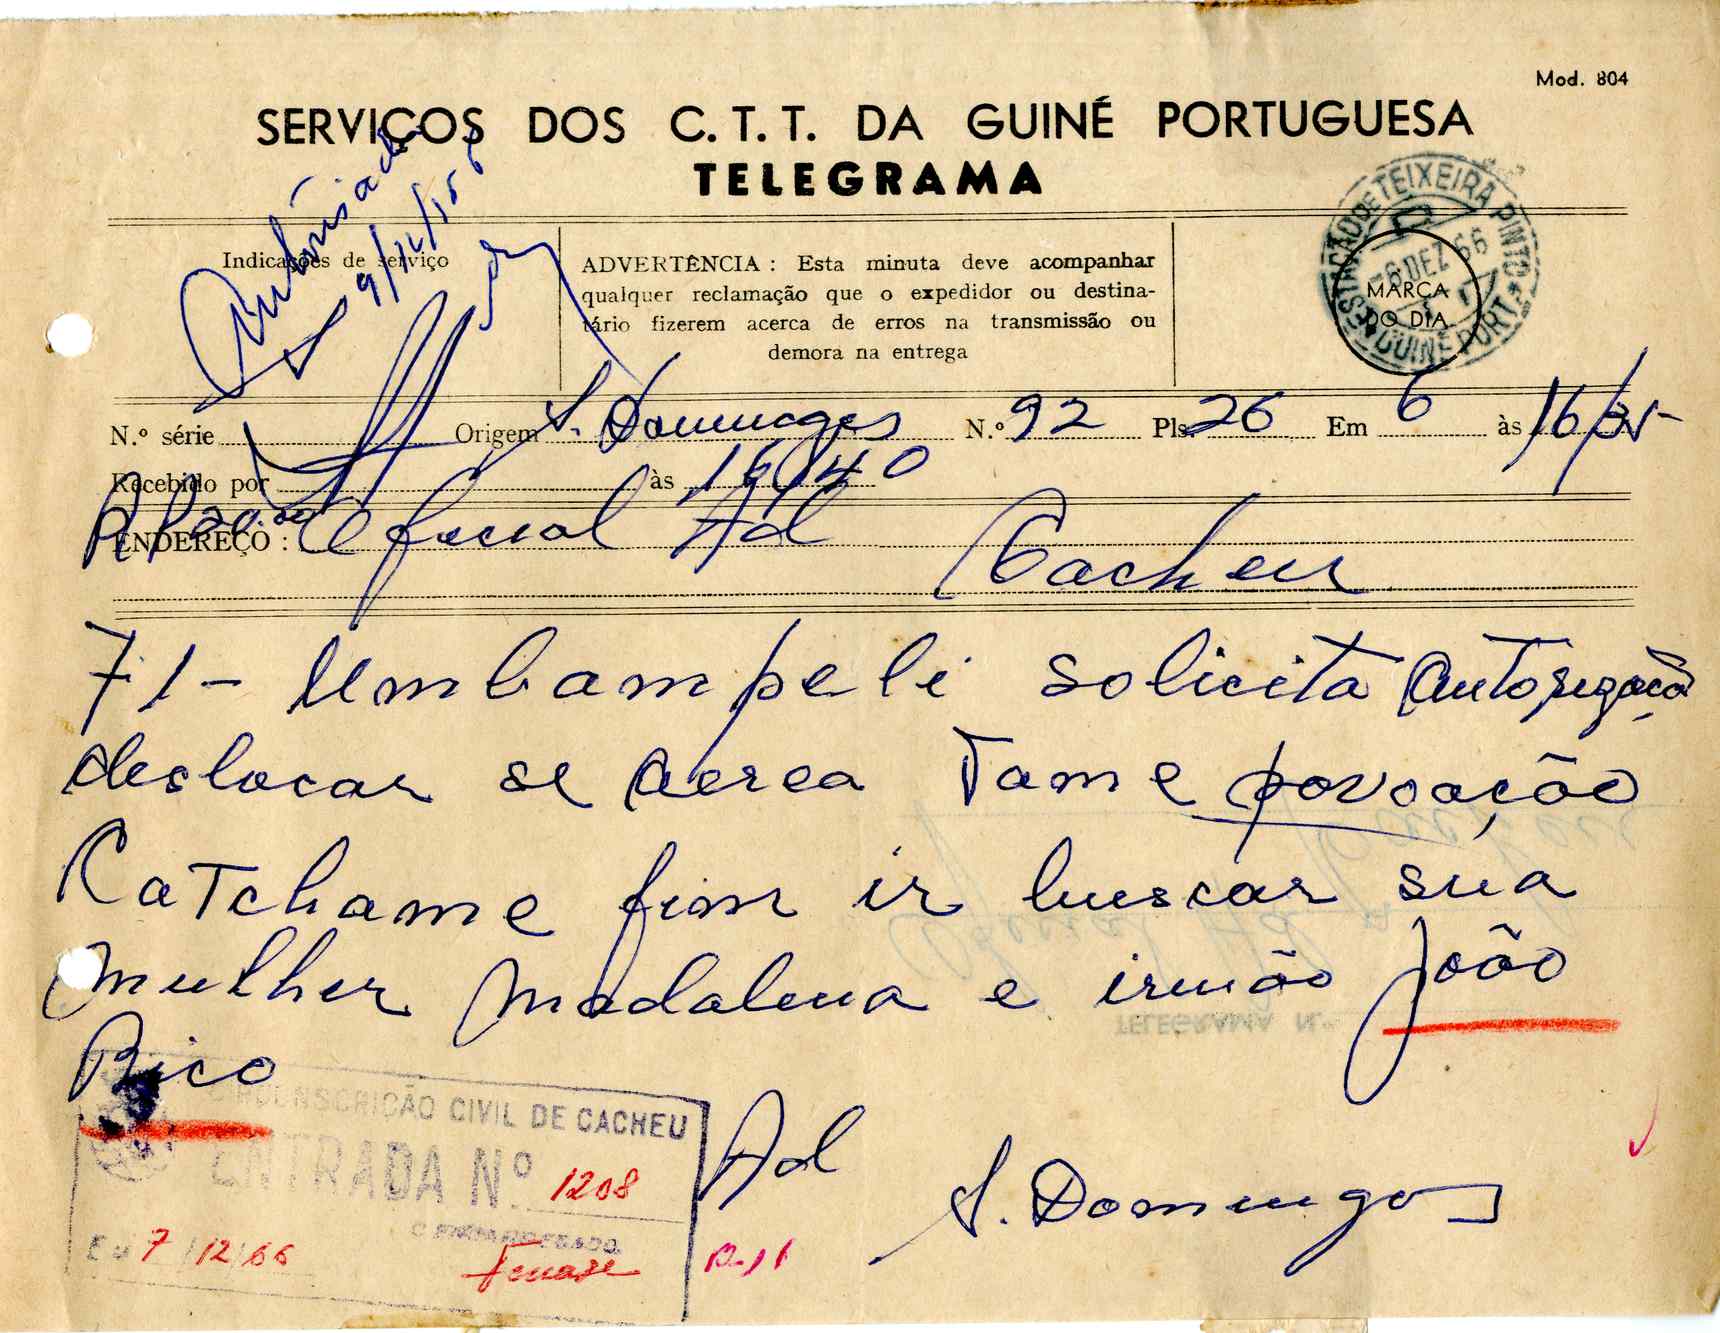 Mod. 804
SERVIÇOS DOS C.T.T. DA GUINÉ PORTUGUESA
TELEGRAMA
Autorisado
9/12/966
Indicações de serviço
ADVERTÊNCIA : Esta minuta deve acompanhar
qualquer reclamação que o expedidor ou destina-
tário fizerem acerca de erros na transmissão ou
demora na entrega
ESTAÇÃO DE TEIXEIRA PINTO
6 DEZ 66
GUINÉ PORT.
MARCA
DO DIA
N.º série Origem S. Domingos N.º 92 Pls. 26 Em 6 às 16/35
Recebido por às 16/40
ENDEREÇO : Oficial Ad
Cacheu
71 - Umbampeli solicita autorização
deslocar se aerea Tame povoação
Catchame fim ir buscar sua
mulher Madalena e irmão João
Bico
TELEGRAMA N.º
CIRCUNSCRIÇÃO CIVIL DE CACHEU
ENTRADA Nº 1208
O ENCARREGADO,
Em 7/12/66
Ad
S. Domingos